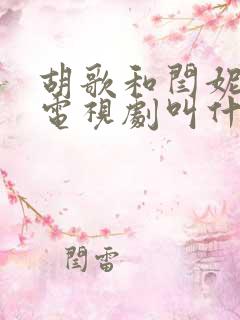 胡歌和閆妮
電視劇叫什
閆雷